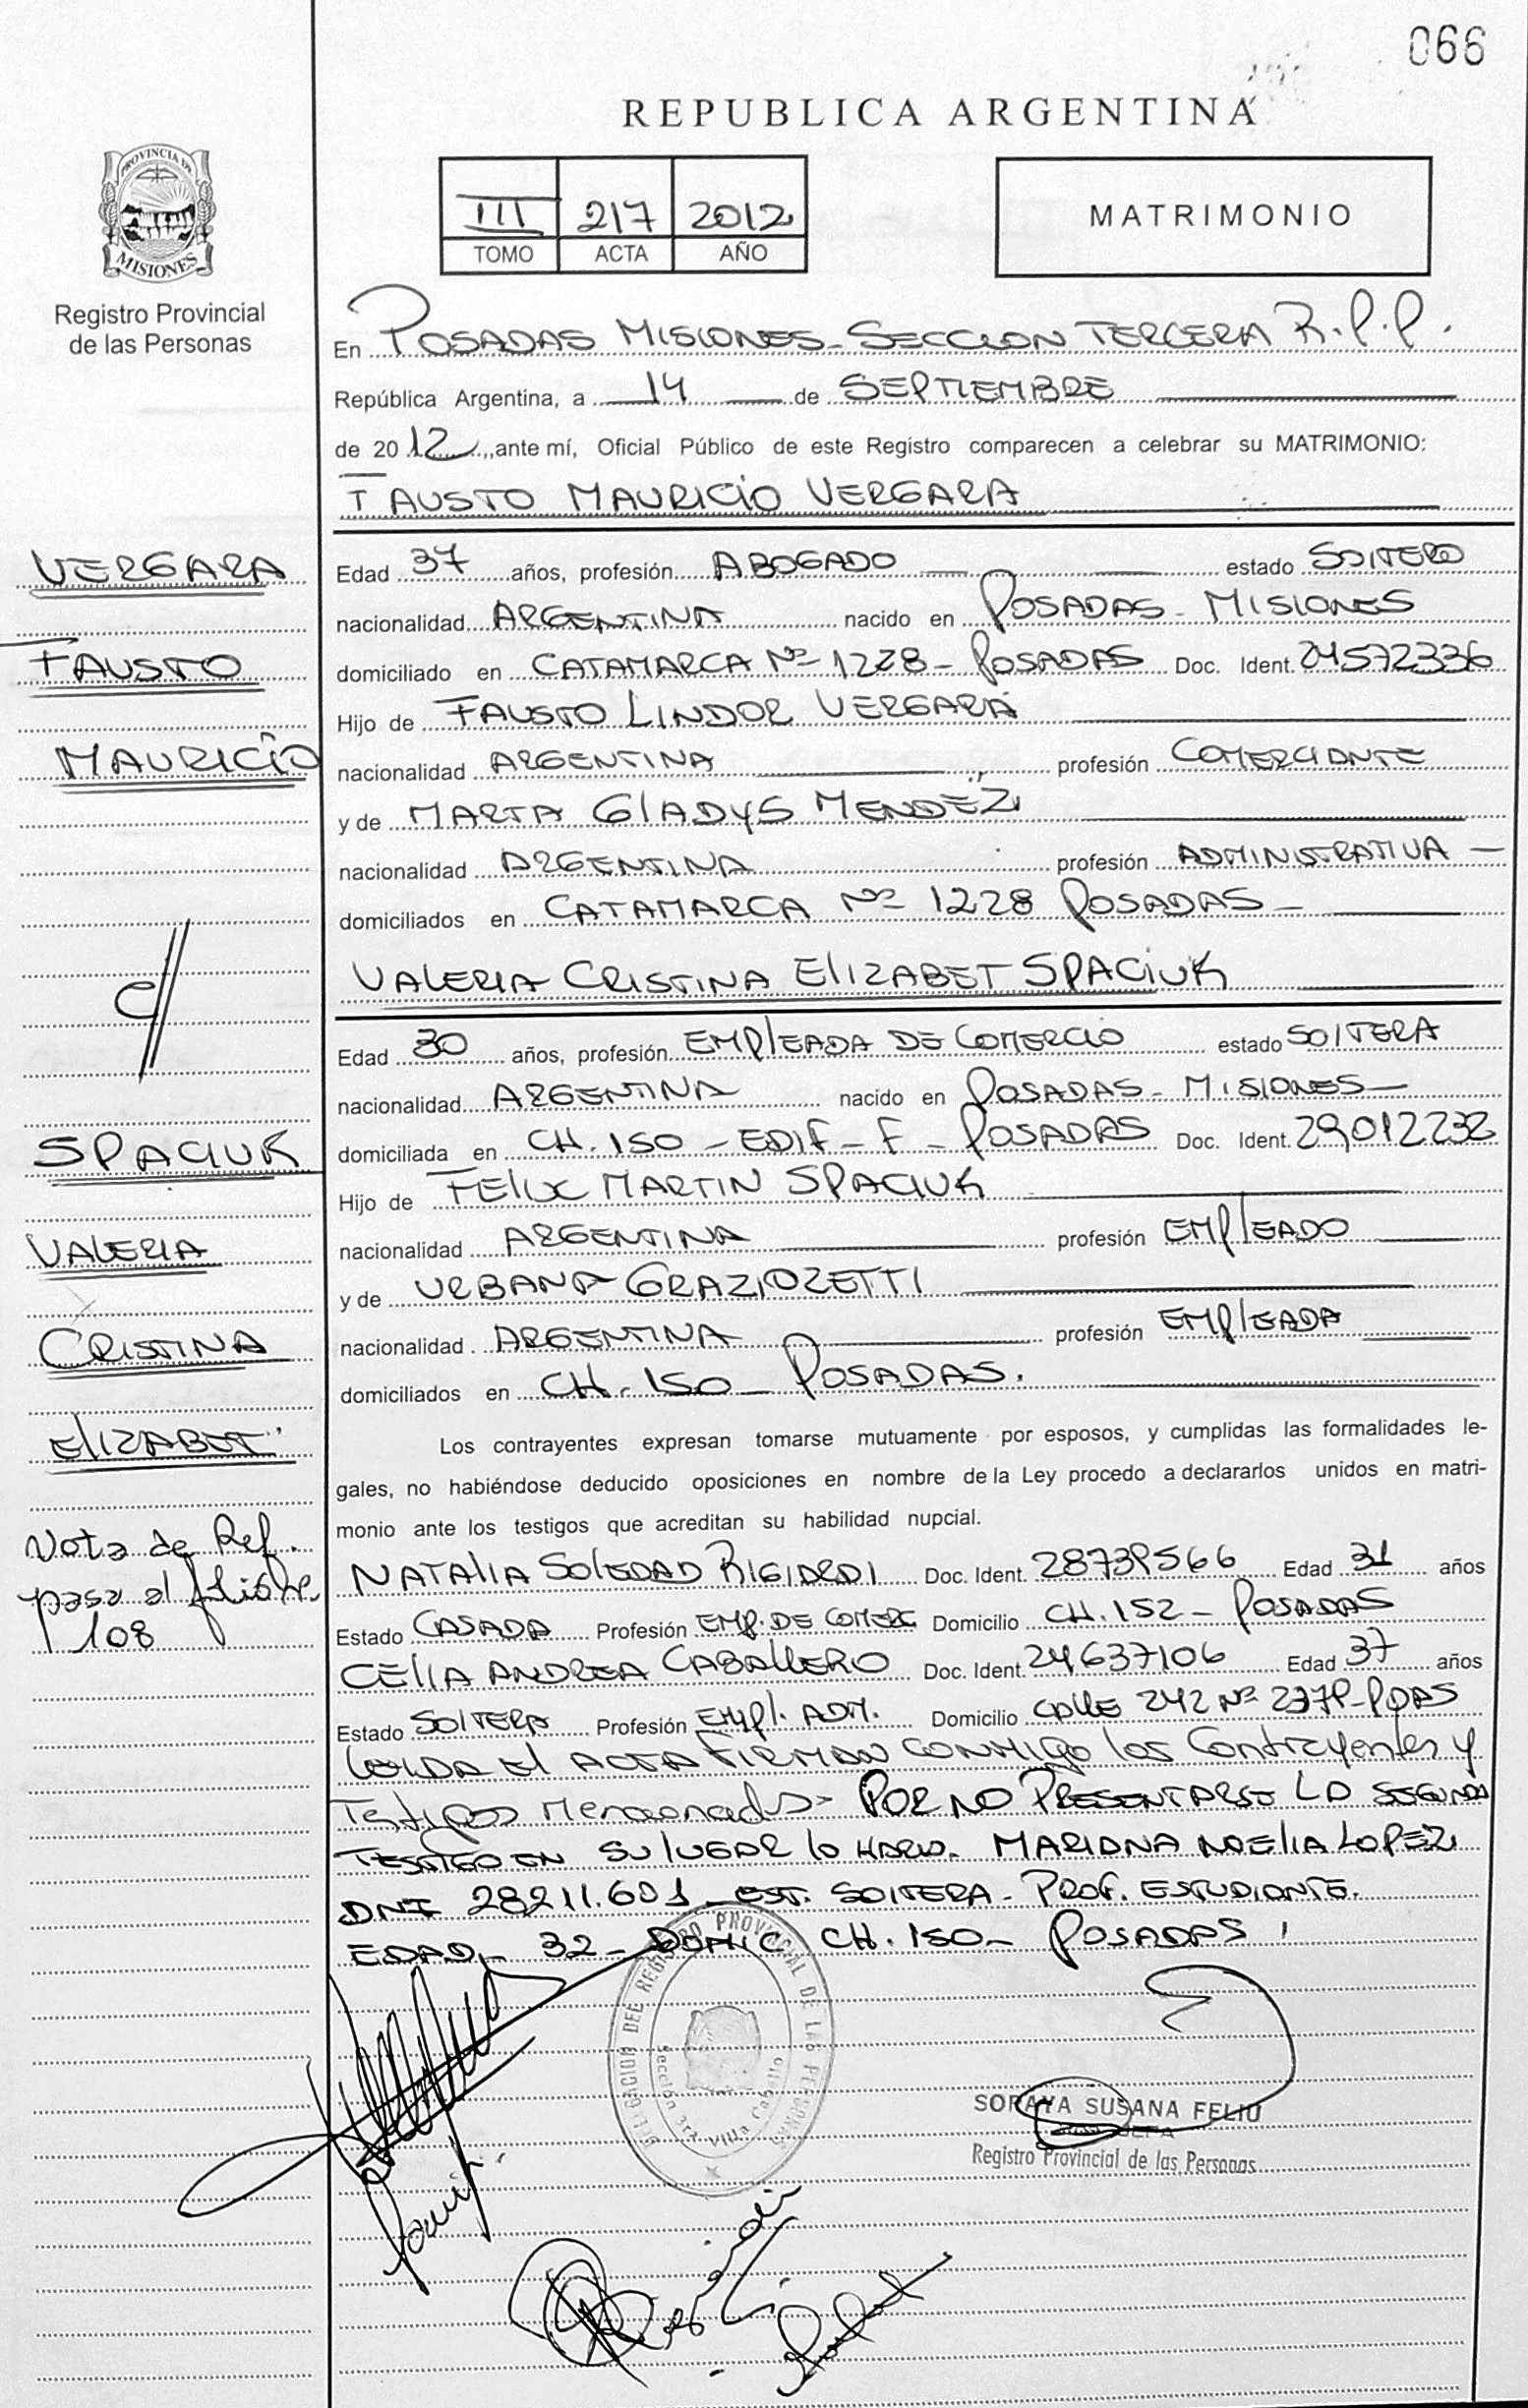 066
REPUBLICA ARGENTINA
PROVINCIA DE
MISIONES
Registro Provincial
de las Personas
III 217 2012
TOMO ACTA AÑO
MATRIMONIO
En POSADAS MISIONES - SECCION TERCERA R.P.P.
República Argentina, a 14 de SEPTIEMBRE
de 2012, ante mí, Oficial Público de este Registro comparecen a celebrar su MATRIMONIO:
FAUSTO MAURICIO VERGARA
VERGARA
FAUSTO
MAURICIO
c//
SPACIUK
VALERIA
CRISTINA
ELIZABET
Nota de Ref.
pasa al folio
108
Edad 37 años, profesión ABOGADO estado SOLTERO
nacionalidad ARGENTINA nacido en POSADAS - MISIONES
domiciliado en CATAMARCA Nº 1228 - POSADAS Doc. Ident. 24572336
Hijo de FAUSTO LINDOR VERGARA
nacionalidad ARGENTINA profesión COMERCIANTE
y de MARTA GLADYS MENDEZ
nacionalidad ARGENTINA profesión ADMINISTRATIVA -
domiciliados en CATAMARCA Nº 1228 POSADAS -
VALERIA CRISTINA ELIZABET SPACIUK
Edad 30 años, profesión EMPLEADA DE COMERCIO estado SOLTERA
nacionalidad ARGENTINA nacido en POSADAS - MISIONES -
domiciliada en CH. 150 - EDIF - F - POSADAS Doc. Ident. 29012232
Hijo de FELIX MARTIN SPACIUK
nacionalidad ARGENTINA profesión EMPLEADO
y de URBANA GRAZIOZETTI
nacionalidad ARGENTINA profesión EMPLEADA
domiciliados en CH. 150 - POSADAS.
Los contrayentes expresan tomarse mutuamente por esposos, y cumplidas las formalidades le-
gales, no habiéndose deducido oposiciones en nombre de la Ley procedo a declararlos unidos en matri-
monio ante los testigos que acreditan su habilidad nupcial.
NATALIA SOLEDAD Doc. Ident. 28739566 Edad 31 años
Estado CASADA Profesión EMP. DE COMERC Domicilio CH. 152 - POSADAS
CELIA ANDREA CABALLERO Doc. Ident. 24637106 Edad 37 años
Estado SOLTERA Profesión EMPL. ADM. Domicilio CALLE 242 Nº - PDAS
LEIDA EL ACTA FIRMAN CONMIGO los Contrayentes y
Testigos Mencionados - POR NO PRESENTARSE LA SEGUNDA
TESTIGO EN SU LUGAR lo HARA. MARIANA NOELIA LOPEZ
DNI 28211.601 - EST. SOLTERA - PROF. ESTUDIANTE.
EDAD - 32 - DOMIC CH. 150 - POSADAS
DELEGACION DEL REGISTRO PROVINCIAL DE LAS PERSONAS
Sección 3ra. Villa Cabello
SORAYA SUSANA FELIU
Registro Provincial de las Personas